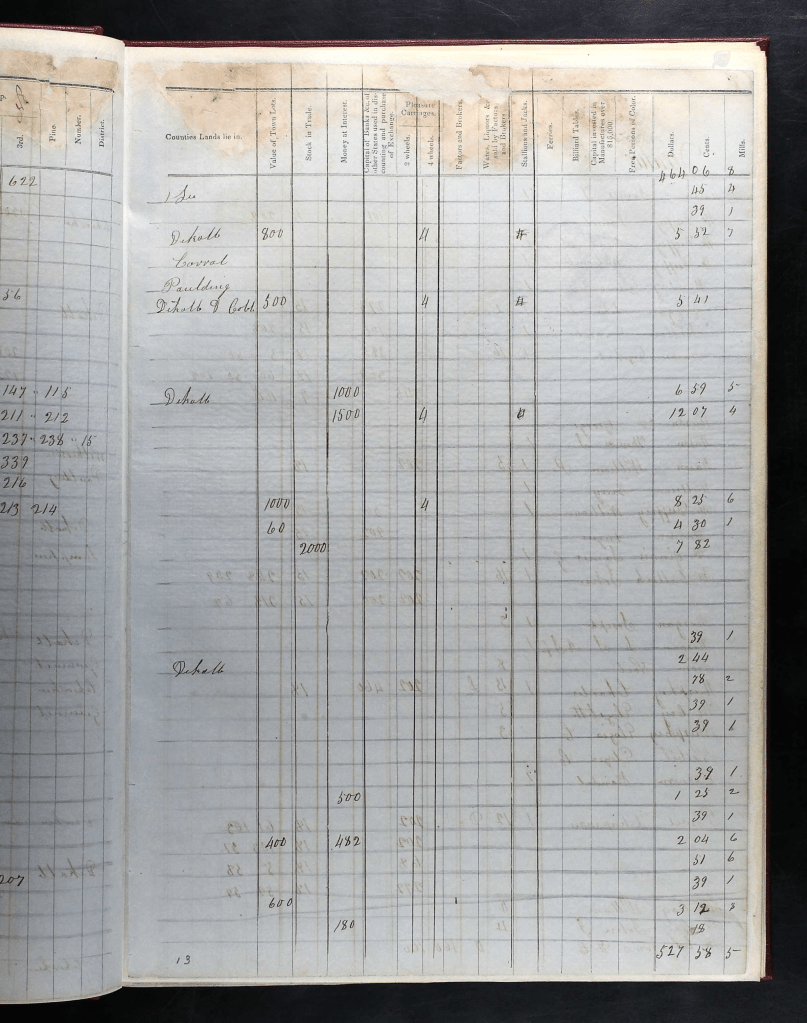 3rd. Pine. Number. District.
Counties Lands lie in. Value of Town Lots. Stock in Trade. Money at Interest. Capital of Banks &c. of other States used in discounting and purchase of Exchange. Pleasure Carriages. 2 wheels. 4 wheels. Factors and Brokers. Wares, Liquors & sold by Factors and Brokers. Stallions and Jacks. Ferries. Billiard Tables. Capital invested in Manufactures over $15,000. Free Persons of Color. Dollars. Cents. Mills.
622 464 06 8
45 4
39 1
Dekalb 800 4 5 52 7
Paulding
56 Dekalb & Cobb 500 4 5 41
147 " 115 Dekalb 1000 6 59 5
211 " 212 1500 4 12 07 4
237 " 238 " 15
339
216
213 214 1000 4 8 25 6
60 4 30 1
2000 7 82
39 1
Dekalb 2 44
78 2
39 1
39 1
39 1
500 1 25 2
39 1
400 482 2 04 6
51 6
207 39 1
600 3 12 8
180 18
13 527 58 5